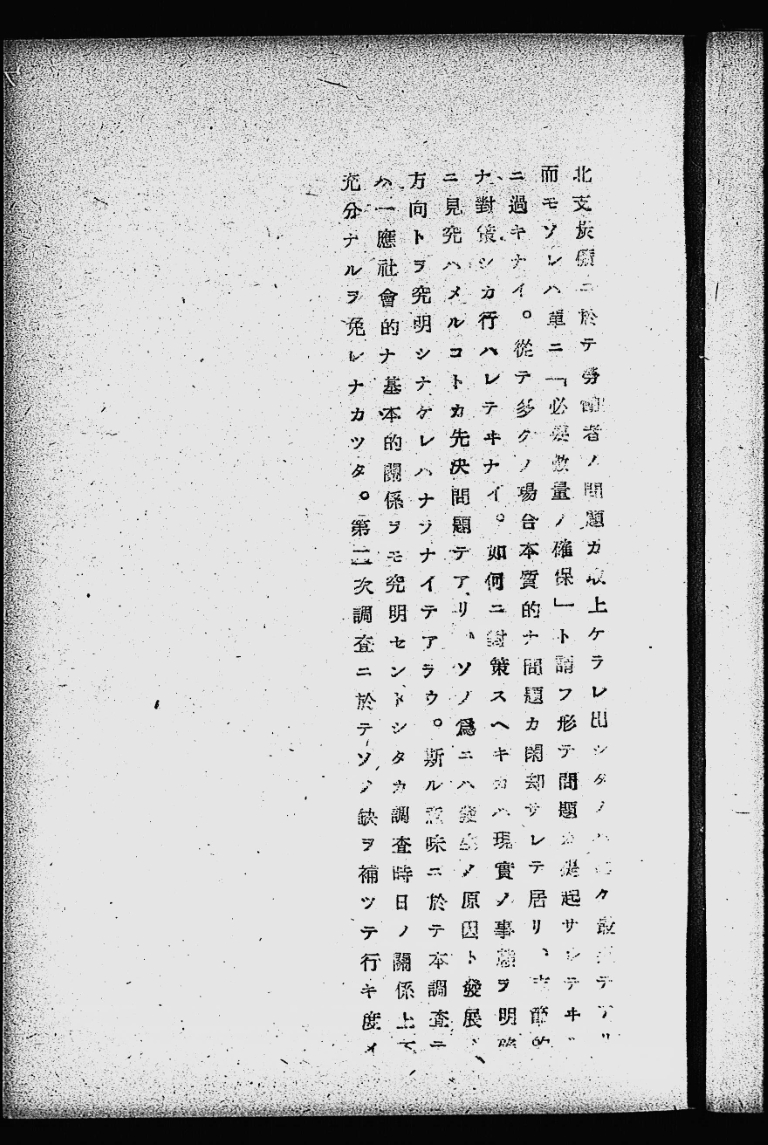 北支旅館ニ於テ勞働者ノ問題カ取上ケラレ出シタノハ極ク最近テアリ
而モソレハ單ニ「必要數量ノ確保」ト謂フ形テ問題カ提起サレテヰル
ニ過キナイ。從テ多クノ場合本質的ナ問題カ閑却サレテ居リ、末節的
ナ對策シカ行ハレテヰナイ。如何ニ對策スヘキカハ現實ノ事態ヲ明確
ニ見究ハメルコトカ先決問題テアリ、ソノ爲ニハ發生ノ原因ト發展ノ
方向トヲ究明シナケレハナラナイテアラウ。斯ル意味ニ於テ本調査ニ
ハ一應社會的ナ基本的關係ヲモ究明セントシタカ調査時日ノ關係上不
充分ナルヲ免レナカツタ。第二次調査ニ於テソノ缺ヲ補ツテ行キ度イ